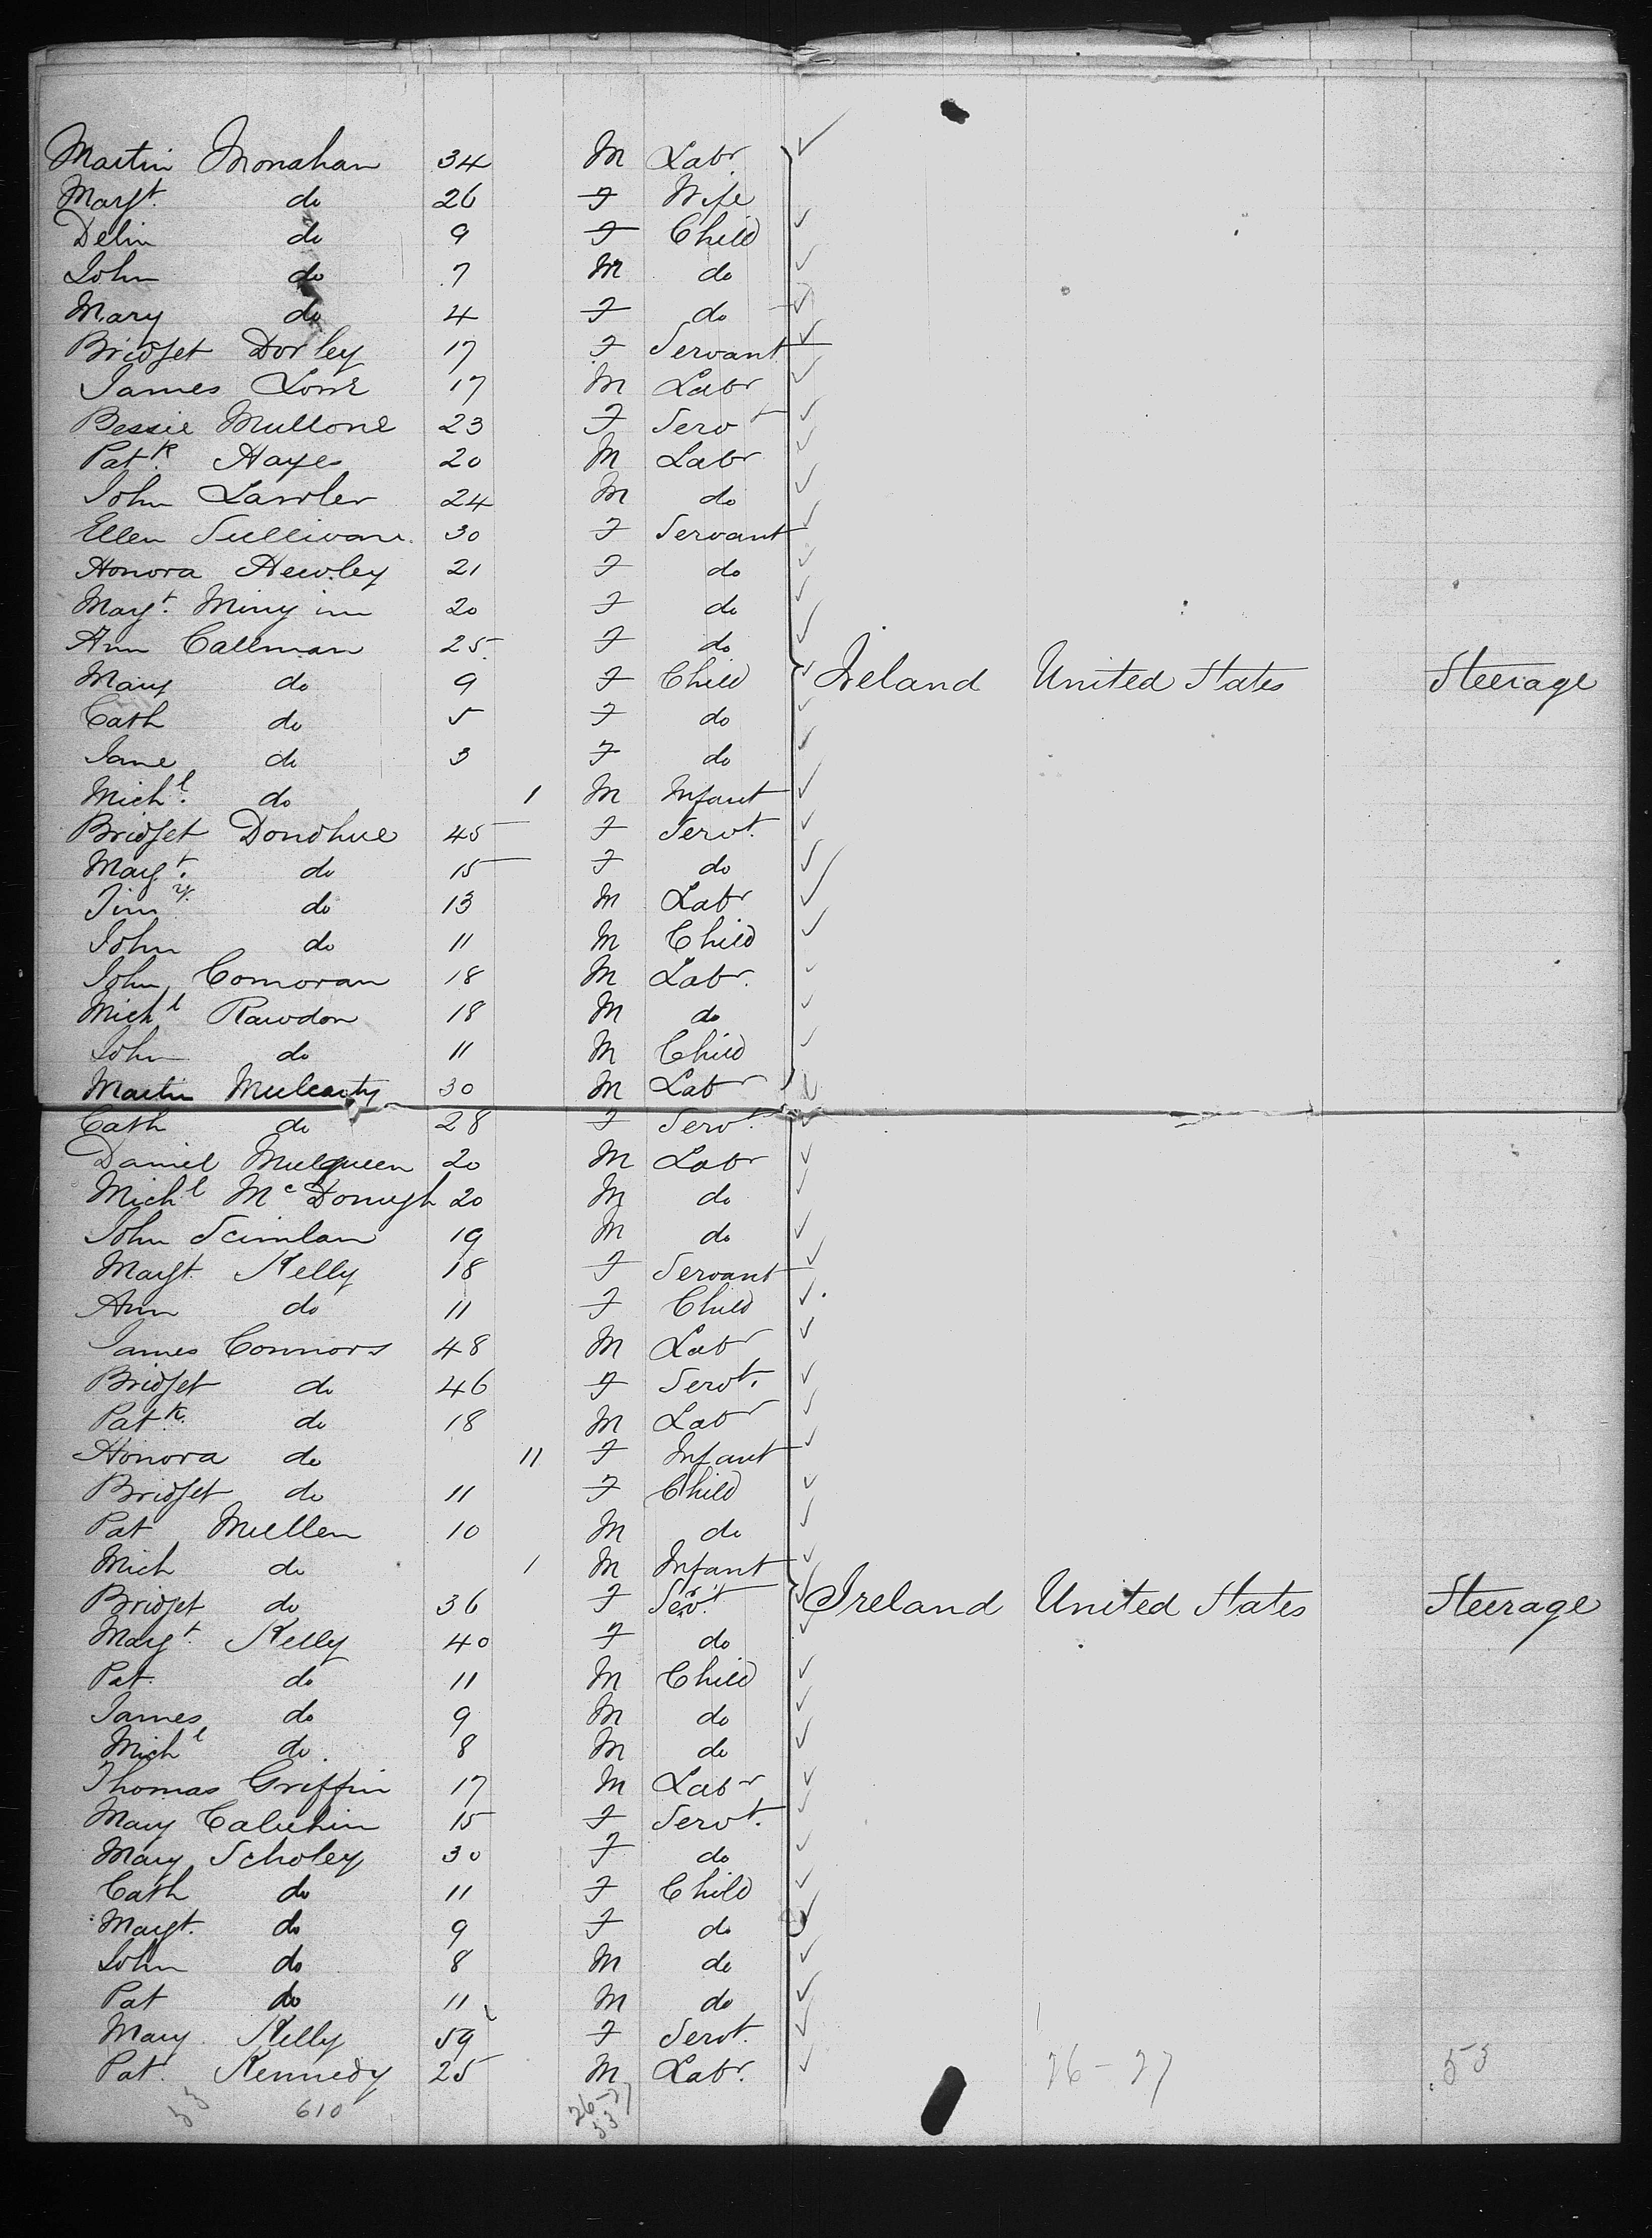 Martin Monahan 34 M Labr
Margt. do 26 F Wife
Delin do 9 F Child
John do 7 M do
Mary do 4 F do
Bridget Dorley 17 F Servant
James 17 M Labr
Bessie Mullone 23 F Servt
Patk. Hayes 20 M Labr
John Lawler 24 M do
Ellen Sullivan 30 F Servant
Honora Hewley 21 F do
Margt. 20 F do
Ann Callman 25 F do
Mary do 9 F Child Ireland United States Steerage
Cath do 5 F do
Jane do 3 F do
Michl. do 1 M Infant
Bridget Donohue 45 F Servt.
Margt. do 15 F do
Timy. do 13 M Labr
John do 11 M Child
John Comoran 18 M Labr.
Michl Rawdon 18 M do
John do 11 M Child
Martin Mulcarty 30 M Labr
Cath do 28 F Servt.
Daniel Mulqueen 20 M Labr
Michl McDonugh 20 M do
John Scimlan 19 M do
Margt. Kelly 18 F Servant
Ann do 11 F Child
James Connors 48 M Labr
Bridget do 46 F Servt.
Patk. do 18 M Labr
Honora do 11 F Infant
Bridget do 11 F Child
Pat Mullen 10 M do
Mich do 1 M Infant
Bridget do 36 F Servt. Ireland United States Steerage
Margt. Kelly 40 F do
Pat. do 11 M Child
James do 9 M do
Michl do. 8 M do
Thomas Griffin 17 M Labr
Mary 15 F Servt.
Mary Scholey 30 F do
Cath do 11 F Child
Margt. do 9 F do
John do 8 M do
Pat do 11 M do
Mary Kelly 59 F Servt.
Pat. Kennedy 25 M Labr.
26-27 53
53 610 26-27
53